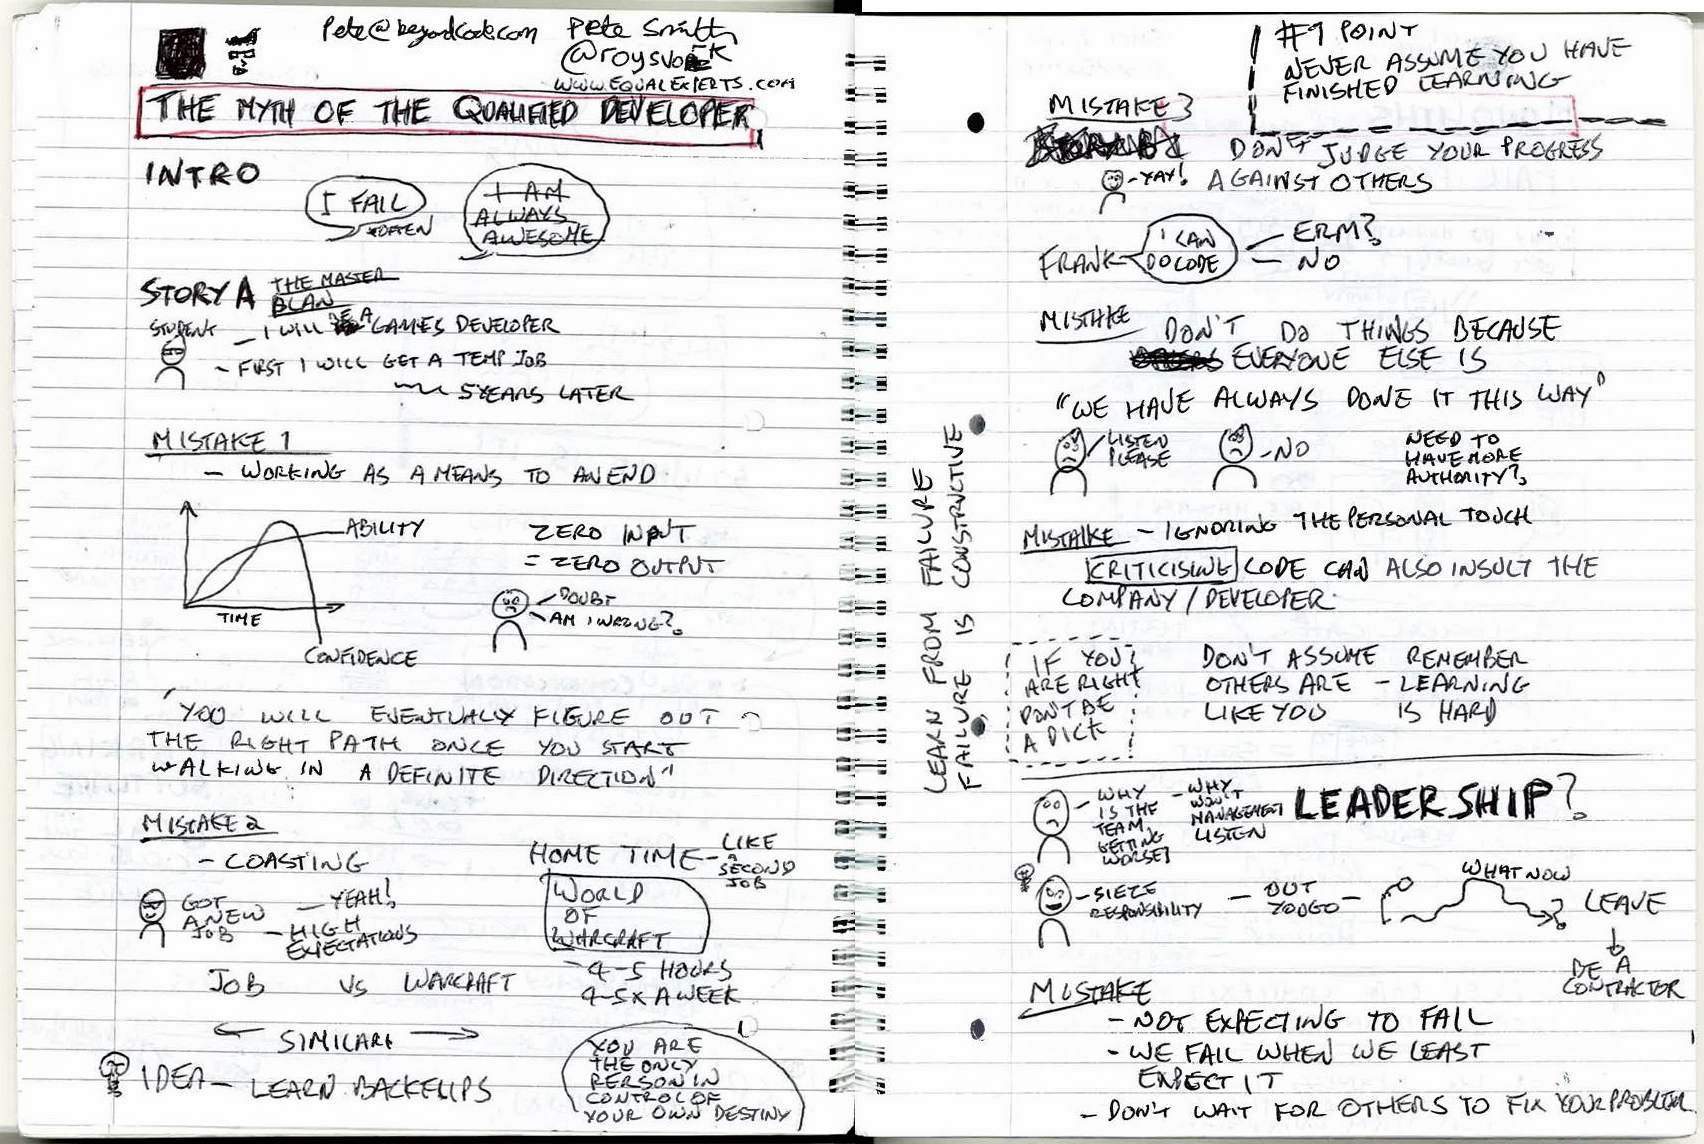 Pete@beyondcode.com
Pete Smith
@roysvork
www.EQUALEXPERTS.com
THE MYTH OF THE QUALIFIED DEVELOPER
INTRO
I FAIL
OFTEN
I AM
ALWAYS
AWESOME
STORY A
THE MASTER
PLAN
STUDENT
- I WILL BE A GAMES DEVELOPER
- FIRST I WILL GET A TEMP JOB
5 YEARS LATER
MISTAKE 1
- WORKING AS A MEANS TO AN END
ABILITY
TIME
CONFIDENCE
ZERO INPUT
= ZERO OUTPUT
DOUBT
AM I WRONG?
"YOU WILL EVENTUALLY FIGURE OUT
THE RIGHT PATH ONCE YOU START
WALKING IN A DEFINITE DIRECTION"
MISTAKE 2
- COASTING
GOT
A NEW
JOB
- YEAH!
- HIGH
EXPECTATIONS
HOME TIME - LIKE
A SECOND
JOB
WORLD
OF
WARCRAFT
- 4-5 HOURS
4-5 X A WEEK
JOB VS WARCRAFT
SIMILAR
IDEA - LEARN BACKFLIPS
YOU ARE
THE ONLY
PERSON IN
CONTROL OF
YOUR OWN DESTINY
#1 POINT
NEVER ASSUME YOU HAVE
FINISHED LEARNING
MISTAKE 3
DON'T JUDGE YOUR PROGRESS
AGAINST OTHERS
- YAY!
FRANK
I CAN
DO CODE
- ERM?
- NO
MISTAKE
DON'T DO THINGS BECAUSE
EVERYONE ELSE IS
"WE HAVE ALWAYS DONE IT THIS WAY"
LISTEN
PLEASE
- NO
NEED TO
HAVE MORE
AUTHORITY?
MISTAKE - IGNORING THE PERSONAL TOUCH
CRITICISING CODE CAN ALSO INSULT THE
COMPANY / DEVELOPER
LEARN FROM FAILURE
FAILURE IS CONSTRUCTIVE
IF YOU
ARE RIGHT
DON'T BE
A DICK
DON'T ASSUME
OTHERS ARE
LIKE YOU
REMEMBER
- LEARNING
IS HARD
LEADERSHIP?
- WHY
IS THE
TEAM
GETTING
WORSE?
- WHY
WON'T
MANAGEMENT
LISTEN
- SIEZE
RESPONSIBILITY
- OUT
YOU GO -
WHAT NOW
?
LEAVE
BE A
CONTRACTOR
MISTAKE
- NOT EXPECTING TO FAIL
- WE FAIL WHEN WE LEAST
EXPECT IT
- DON'T WAIT FOR OTHERS TO FIX YOUR PROBLEM